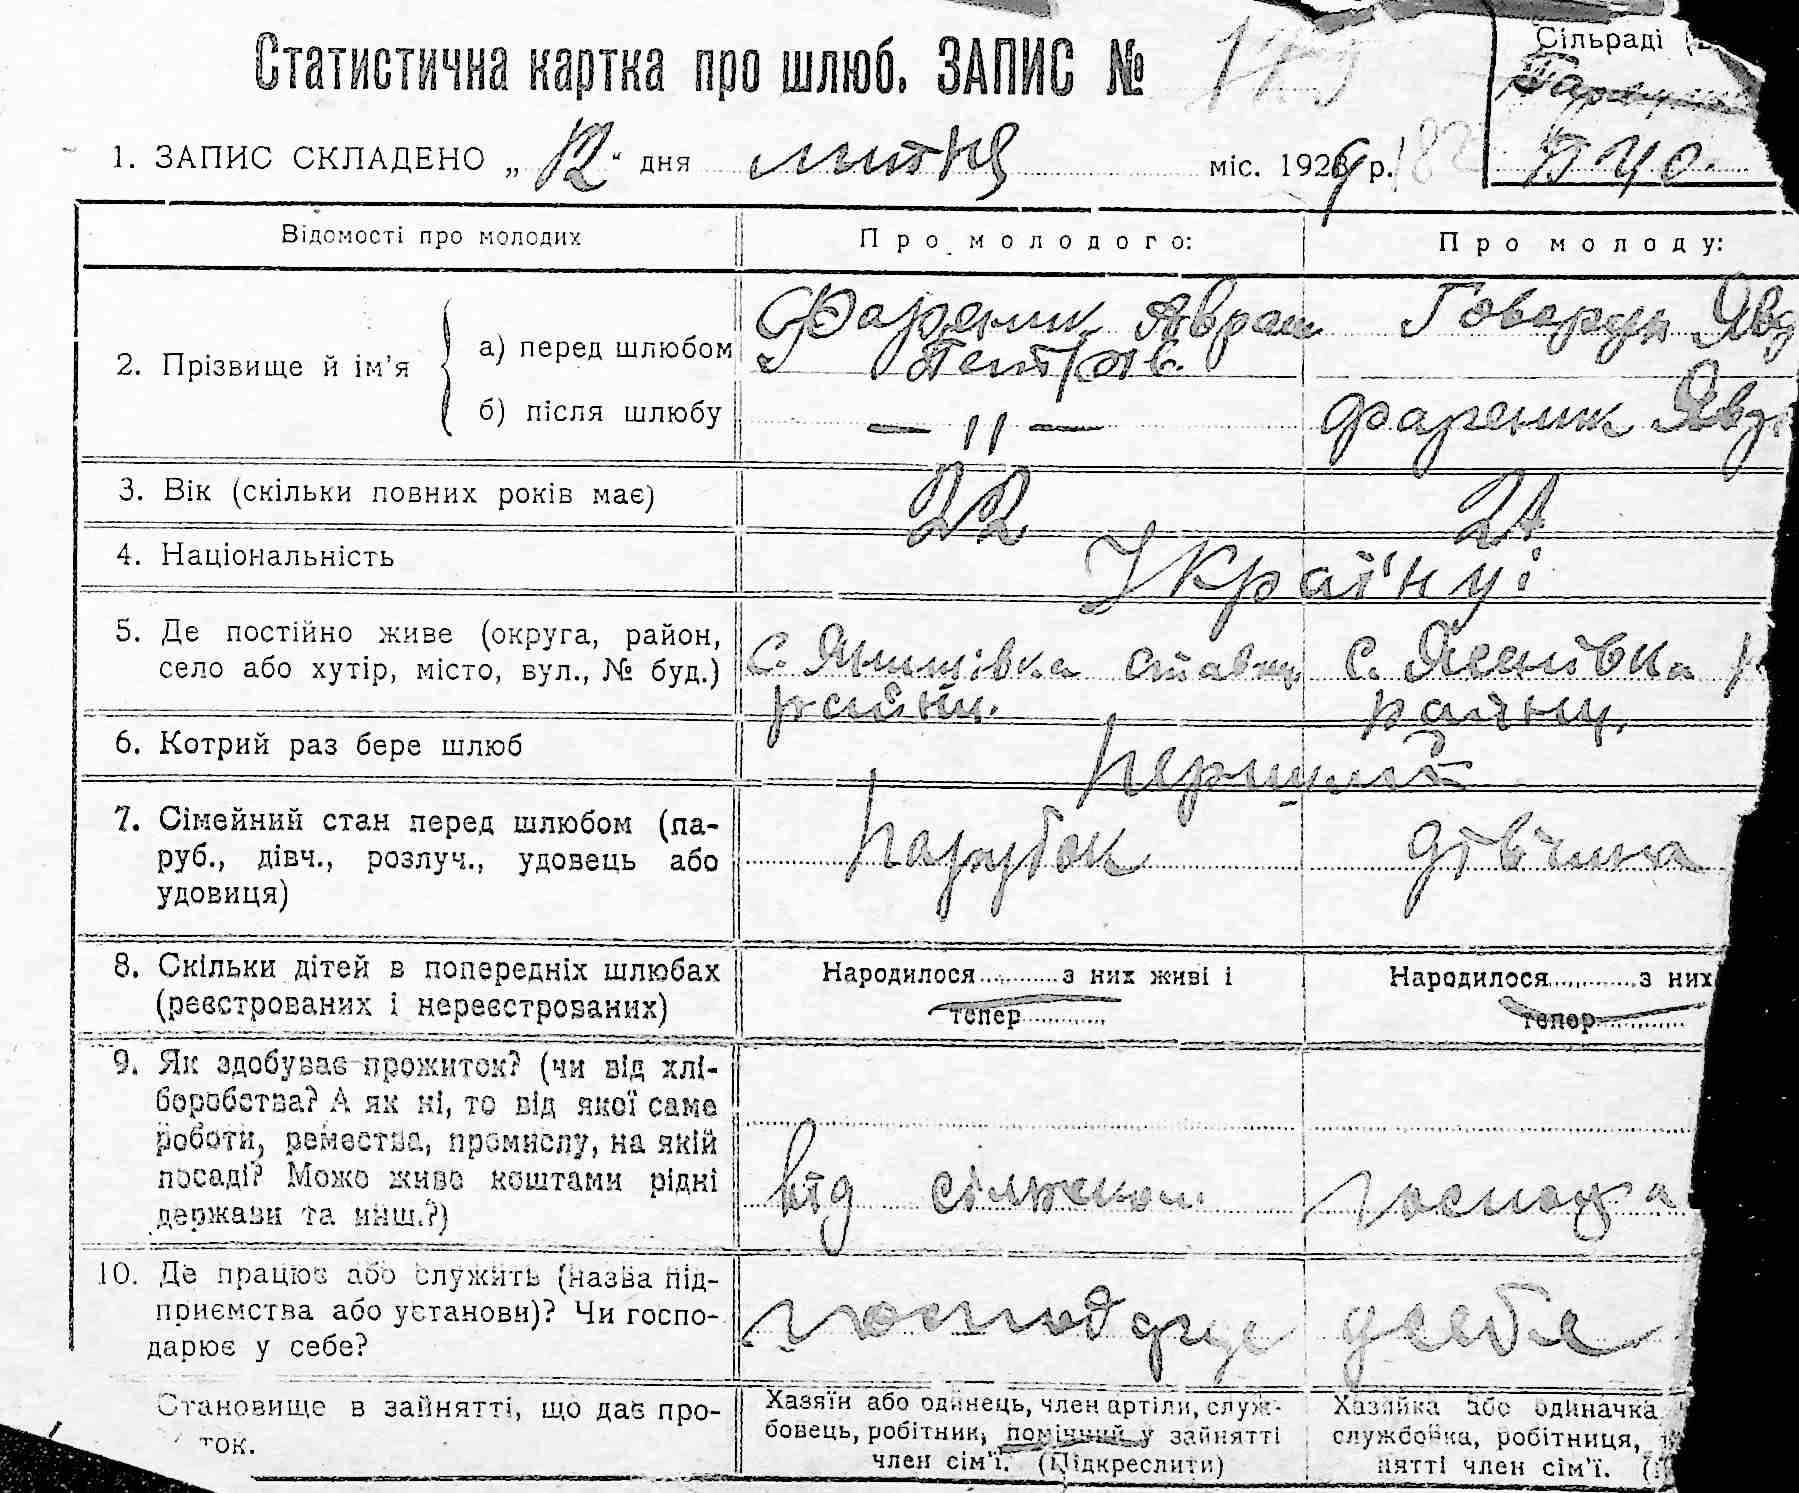 Статистична картка про шлюб. ЗАПИС №
Сільраді
1. ЗАПИС СКЛАДЕНО „12“ дня лютня міс. 1929 р.
Відомості про молодих
Про молодого:
Про молоду:
2. Прізвище й ім’я
а) перед шлюбом
Фареник Аврам
Петров.
Говорун Явд
б) після шлюбу
— 〃 —
Фареник Явд
3. Вік (скільки повних років має)
22
21
4. Національність
Українці
5. Де постійно живе (округа, район,
село або хутір, місто, вул., № буд.)
с. Янишівка Ставищ
району.
с. Ясенівка
району,
6. Котрий раз бере шлюб
перший
7. Сімейний стан перед шлюбом (па-
руб., дівч., розлуч., удовець або
удовиця)
парубок
дівчина
8. Скільки дітей в попередніх шлюбах
(реєстрованих і нереєстрованих)
Народилося.........з них живі і
тепер............
Народилося............з них
тепер............
9. Як здобуває прожиток? (чи від хлі-
боробства? А як ні, то від якої саме
роботи, ремества, промислу, на якій
посаді? Може живе коштами рідні
держави та инш.?)
від сільськом
господа
10. Де працює або служить (назва під-
приємства або установи)? Чи госпо-
дарює у себе?
господарує
у себе
Становище в зайнятті, що дає про-
ток.
Хазяїн або одинець, член артіли, служ-
бовець, робітник, помічний у зайнятті
член сім’ї. (Підкреслити)
Хазяйка або одиначка
службовка, робітниця,
нятті член сім’ї.